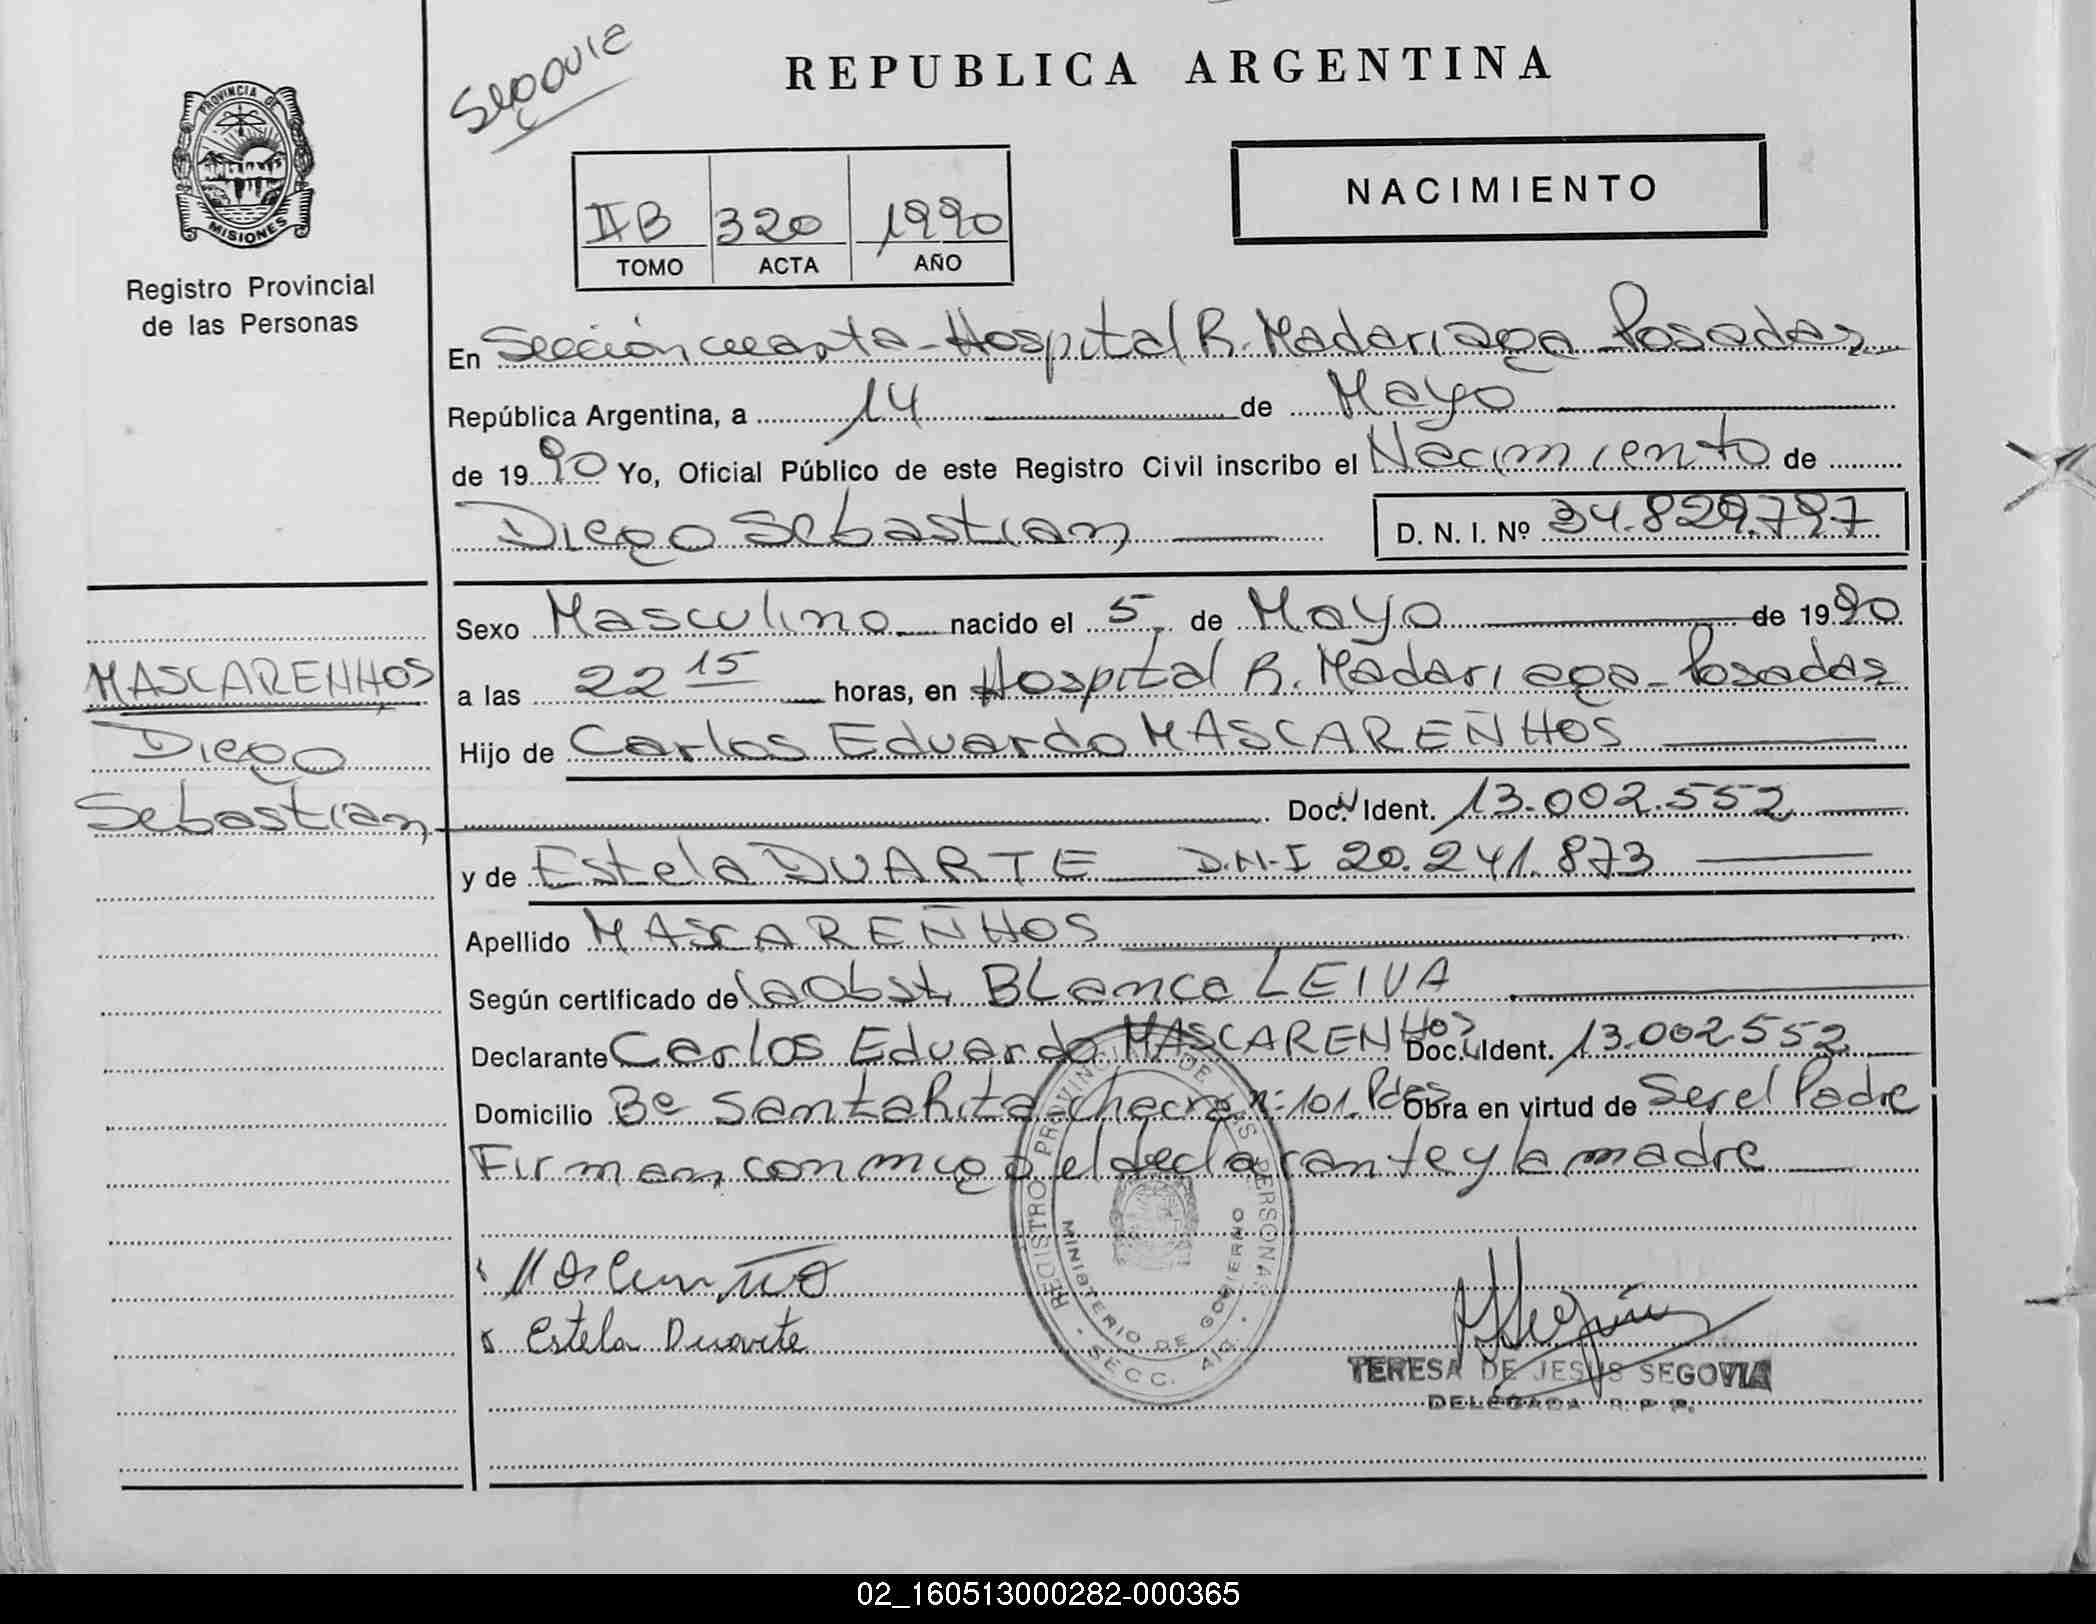 Segovia
REPUBLICA ARGENTINA
PROVINCIA DE
MISIONES
Registro Provincial
de las Personas
II B 320 1990
TOMO ACTA AÑO
NACIMIENTO
En Sección cuarta - Hospital R. Madariaga Posadas
República Argentina, a 14 de Mayo
de 1990 Yo, Oficial Público de este Registro Civil inscribo el Nacimiento de
Diego Sebastian D. N. I. Nº 34.829.797
Sexo Masculino nacido el 5 de Mayo de 1990
a las 22 15 horas, en Hospital R. Madariaga - Posadas
Hijo de Carlos Eduardo MASCAREÑHOS
Doc. Ident. 13.002.552
y de Estela DUARTE D.N.I 20.241.873
Apellido MASCAREÑHOS
Según certificado de la Obst. Blanca LEIVA
Declarante Carlos Eduardo MASCARENHOS Doc. Ident. 13.002.552
Domicilio Bº Santa Rita - chacra nº 101. Pdas Obra en virtud de Ser el Padre
Firman conmigo el declarante y la madre
MASCARENHOS
Diego
Sebastian
Estela Duarte
REGISTRO PROVINCIAL DE LAS PERSONAS
MINISTERIO DE GOBIERNO
SECC. 4ta.
TERESA DE JESUS SEGOVIA
DELEGADA R. P. P.
02_160513000282-000365